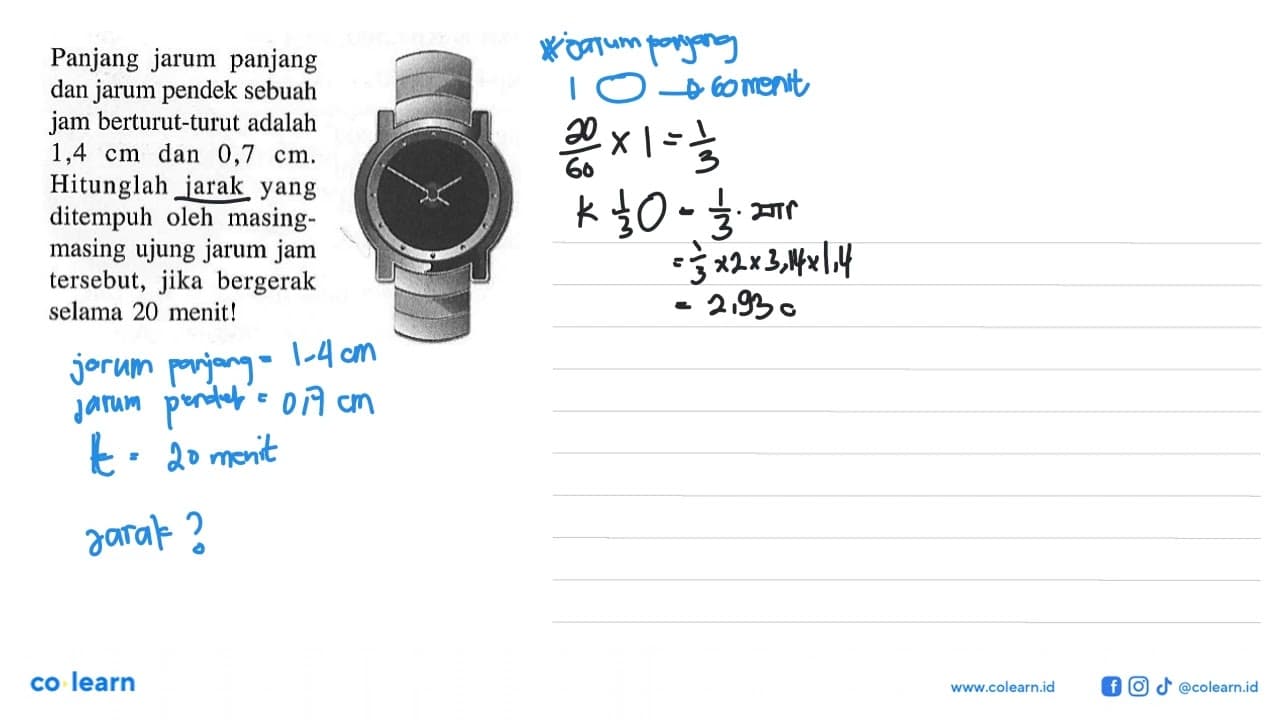 Panjang jarum panjang
dan jarum pendek sebuah
jam berturut-turut adalah
1,4 cm dan 0,7 cm.
Hitunglah jarak yang
ditempuh oleh masing-
masing ujung jarum jam
tersebut, jika bergerak
selama 20 menit!
jarum panjang = 1-4 cm
jarum pendek = 0,7 cm
t = 20 menit
Jarak ?
* jarum panjang
1 O → 60 menit
20/60 x 1 = 1/3
k 1/3 O = 1/3 . 2πr
= 1/3 x 2 x 3,14 x 1,4
= 2,93 c
co learn
www.colearn.id
@colearn.id